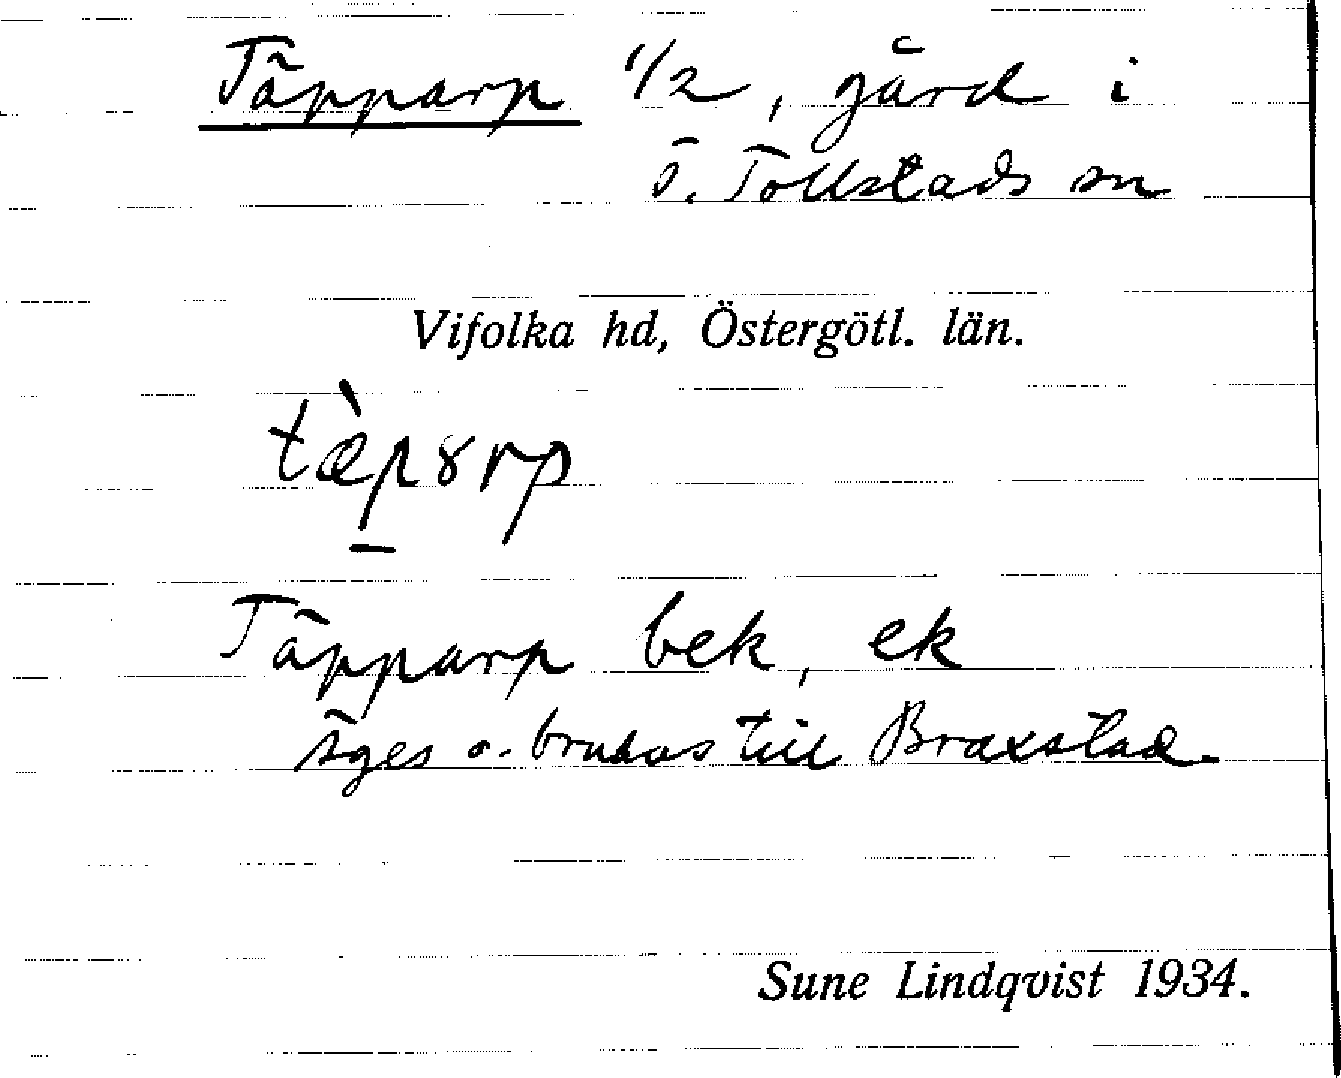 Täpparp 1/2, gård i
Ö. Tollstads sn
Vifolka hd, Östergötl. län.
tæ̀p̱ɤrp
Täpparp bek, ek
äges o. brukas till Braxstad.
Sune Lindqvist 1934.